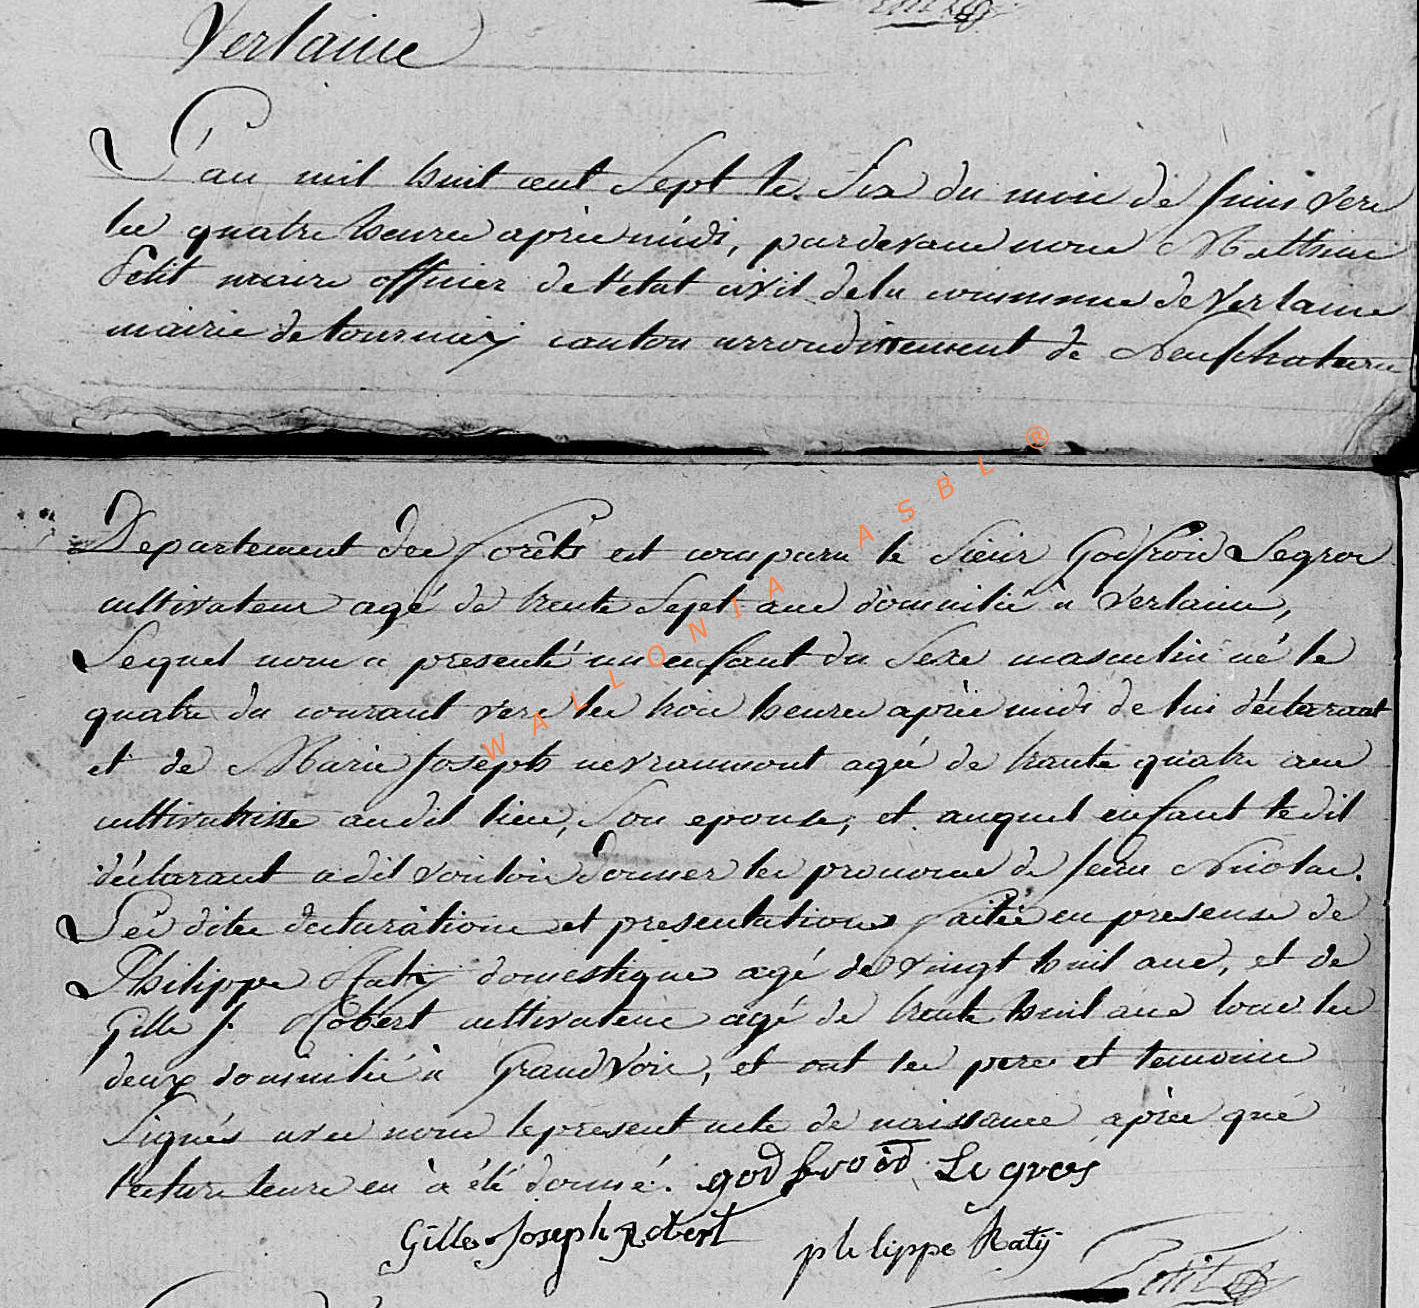 Petit
Verlaine
L'an mil huit cent Sept le Six du mois de Juin vers
les quatre heures après midi, pardevant nous Matthieu
Petit maire officier de l'etat civil de la commune de Verlaine
mairie de tournay canton arrondissement de Neufchateau
Departement des forêts est comparu le Sieur Godfroid Legros
cultivateur agé de trente Sept ans domicilié à Verlaine,
Lequel nous a presenté un enfant du Sexe masculin né le
quatre du courant vers les trois heures après midi de lui déclarant
et de Marie Joseph nevraumont agée de trente quatre ans
cultivatrisse audit lieu, Son epouse, et auquel enfant ledit
déclarant a dit vouloir donner les prenoms de Jean Nicolas.
Les dites declarations et presentations faites en presense de
Philippe Raty domestique agé de vingt huit ans, et de
Gille J. Robert cultivateur agé de trente huit ans tous les
deux domicilié à Grandvoir, et ont les pere et temoins
Signés avec nous le present acte de naissance après que
lecture leure en à été donné. godfroid Legros
Gille Joseph Robert philippe Ratij
Petit
WALLONIA ASBL ®